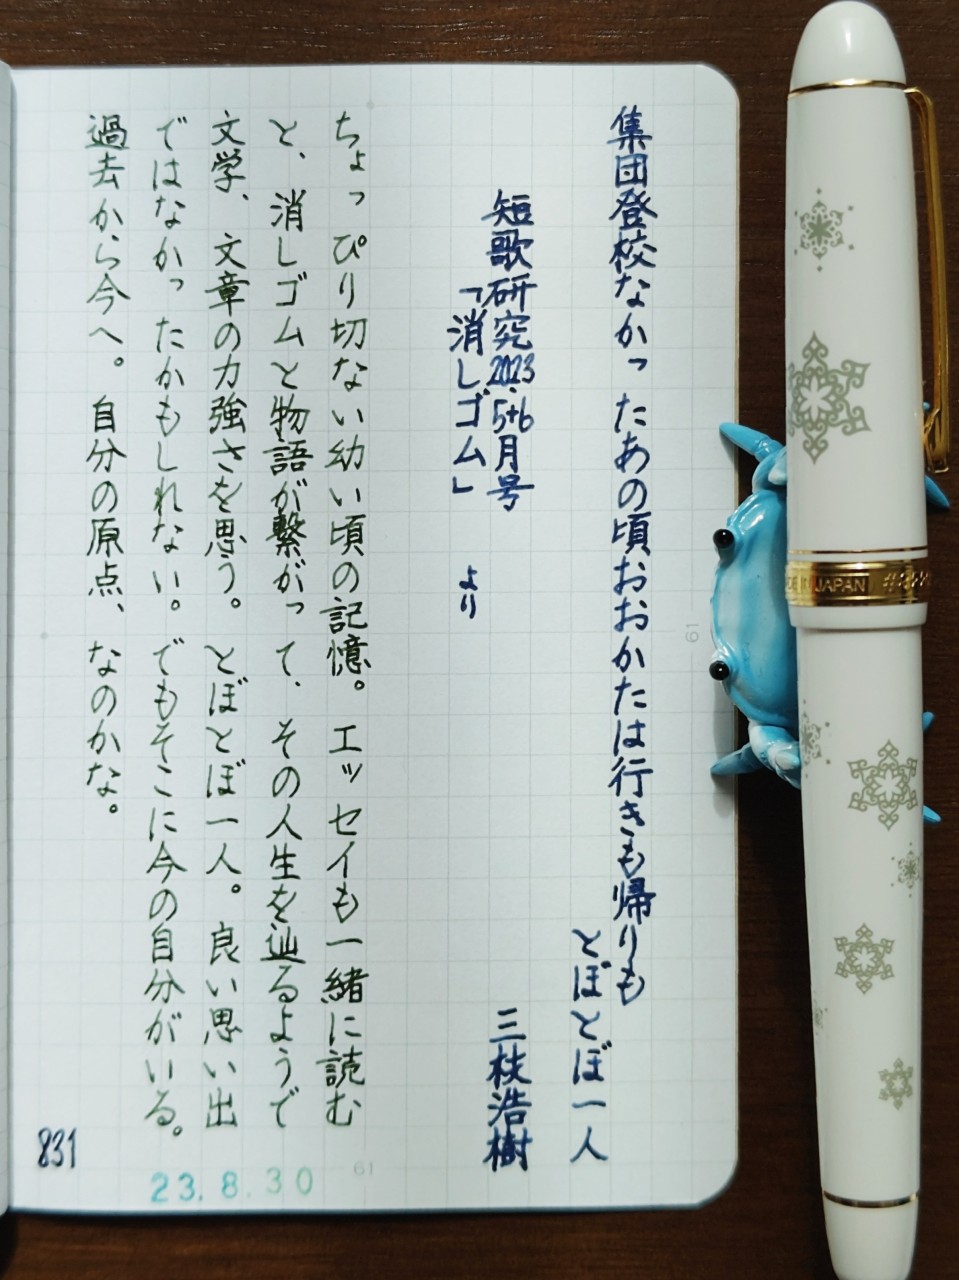 集団登校なかったあの頃おおかたは行きも帰りも
とぼとぼ一人
短歌研究2023.5+6月号 三枝浩樹
「消しゴム」 より
ちょっぴり切ない幼い頃の記憶。エッセイも一緒に読む
と、消しゴムと物語が繋がって、その人生を辿るようで
文学、文章の力強さを思う。とぼとぼ一人。良い思い出
ではなかったかもしれない。でもそこに今の自分がいる。
過去から今へ。自分の原点、なのかな。
831
23.8.30
61
61
IN JAPAN